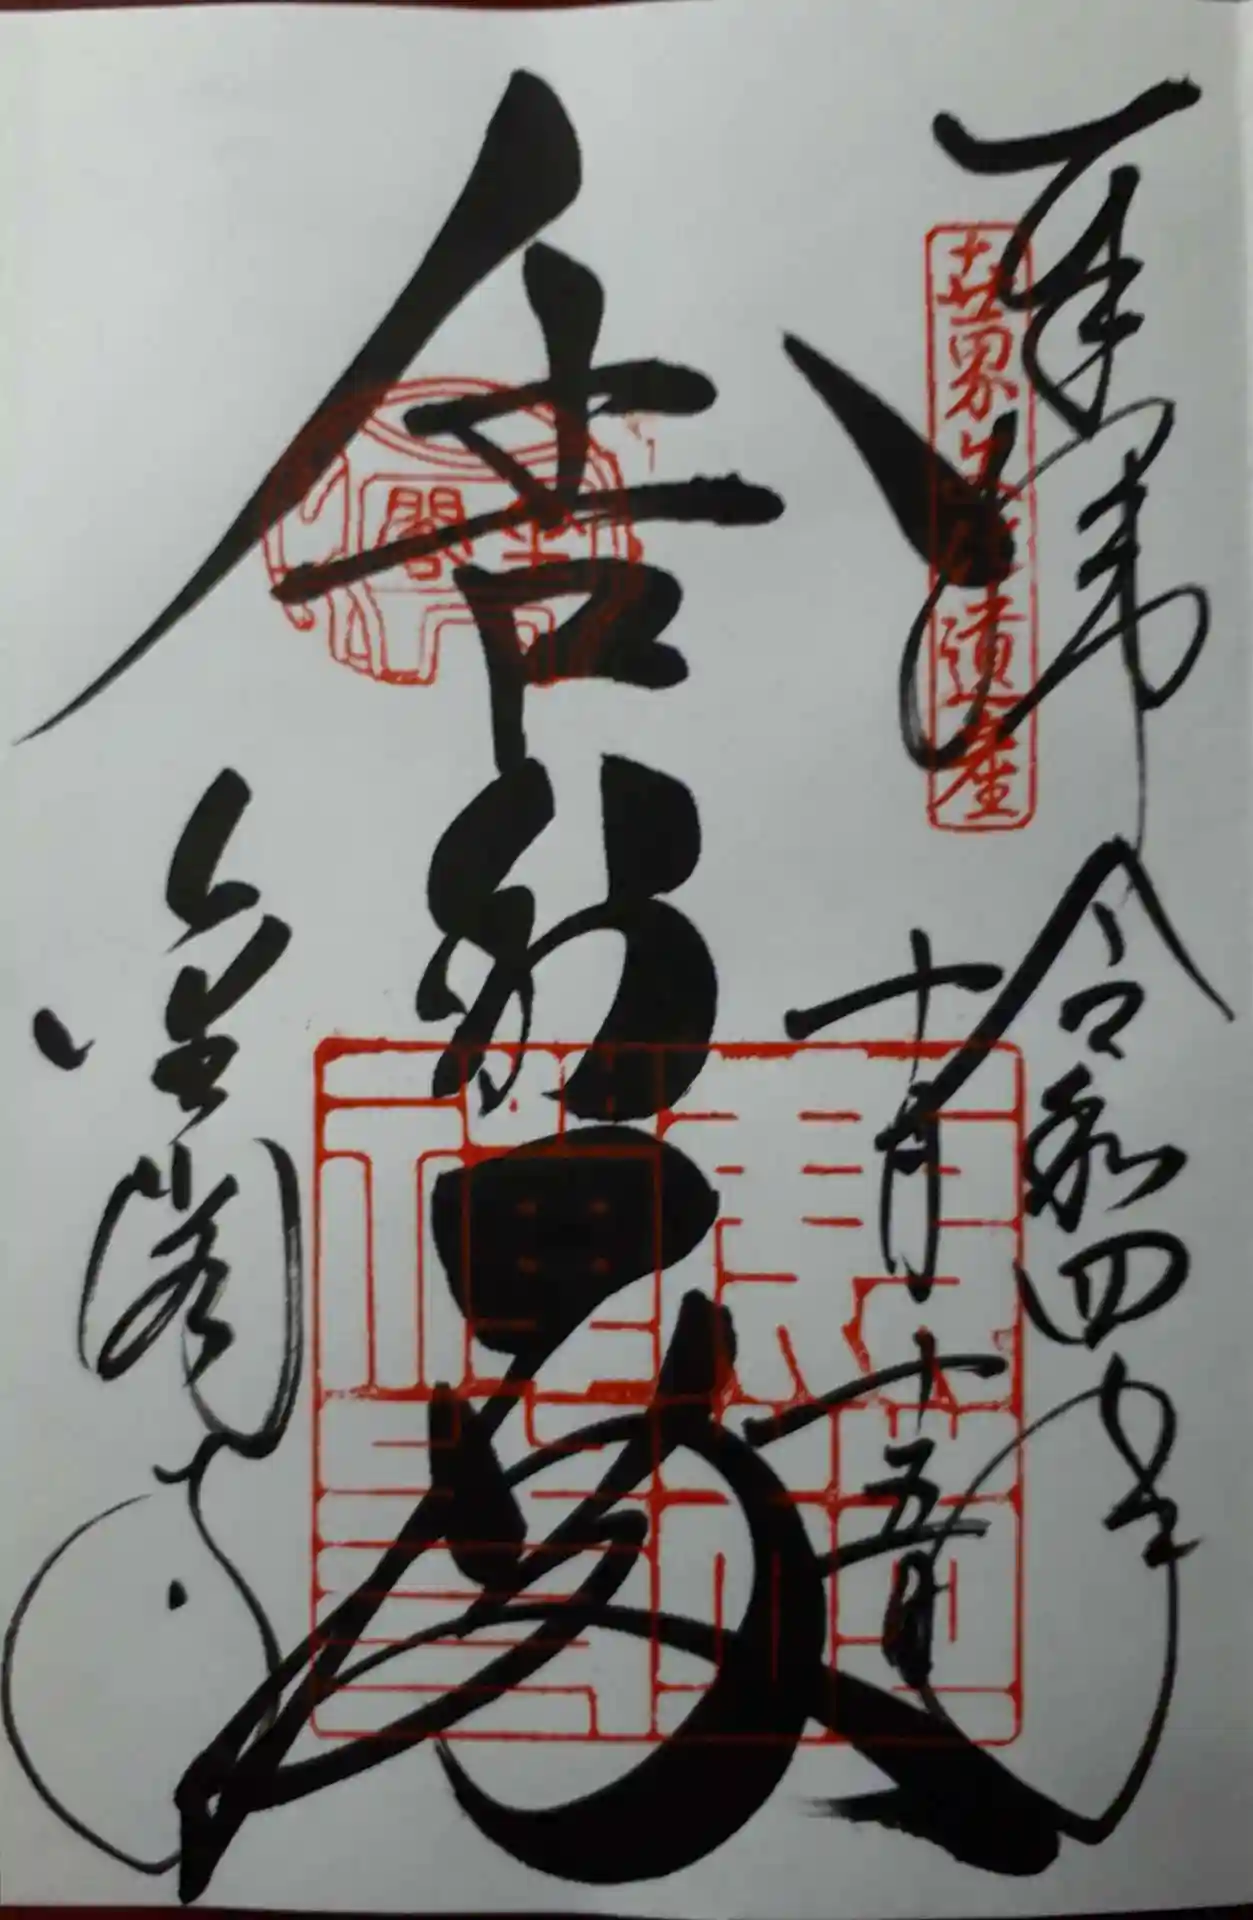 奉拝
令和四年
十月十五日
世界文化遺産
舎利殿
金閣
金閣寺